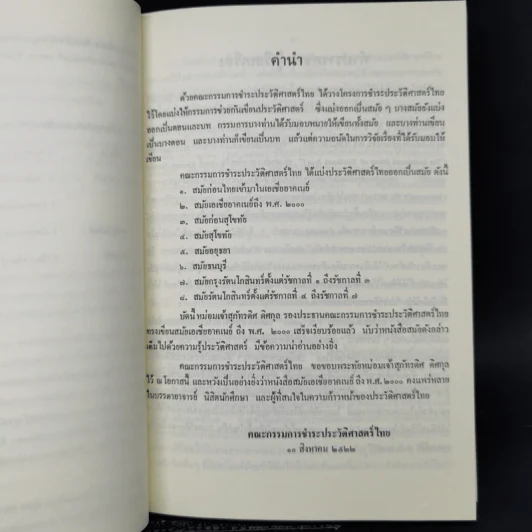 คำนำ
ด้วยคณะกรรมการชำระประวัติศาสตร์ไทย ได้วางโครงการชำระประวัติศาสตร์ไทย
ไว้โดยแบ่งให้กรรมการช่วยกันเขียนประวัติศาสตร์ ซึ่งแบ่งออกเป็นสมัย ๆ บางสมัยยังแบ่ง
ออกเป็นตอนและบท กรรมการบางท่านได้รับมอบหมายให้เขียนทั้งสมัย และบางท่านเขียน
เป็นบางตอน และบางท่านก็เขียนเป็นบท แล้วแต่ความถนัดในการวิจัยเรื่องที่ได้รับมอบให้
เขียน
คณะกรรมการชำระประวัติศาสตร์ไทย ได้แบ่งประวัติศาสตร์ไทยออกเป็นสมัย ดังนี้
๑. สมัยก่อนไทยเข้ามาในเอเชียอาคเนย์
๒. สมัยเอเชียอาคเนย์ถึง พ.ศ. ๒๐๐๐
๓. สมัยก่อนสุโขทัย
๔. สมัยสุโขทัย
๕. สมัยอยุธยา
๖. สมัยธนบุรี
๗. สมัยกรุงรัตนโกสินทร์ตั้งแต่รัชกาลที่ ๑ ถึงรัชกาลที่ ๓
๘. สมัยรัตนโกสินทร์ตั้งแต่รัชกาลที่ ๔ ถึงรัชกาลที่ ๗
บัดนี้ หม่อมเจ้าสุภัทรดิศ ดิศกุล รองประธานคณะกรรมการชำระประวัติศาสตร์ไทย
ทรงเขียนสมัยเอเชียอาคเนย์ ถึง พ.ศ. ๒๐๐๐ เสร็จเรียบร้อยแล้ว นับว่าหนังสือสมัยดังกล่าว
เต็มไปด้วยความรู้ประวัติศาสตร์ มีข้อความน่าอ่านอย่างยิ่ง
คณะกรรมการชำระประวัติศาสตร์ไทย ขอขอบพระทัยหม่อมเจ้าสุภัทรดิศ ดิศกุล
ไว้ ณ โอกาสนี้ และหวังเป็นอย่างยิ่งว่าหนังสือสมัยเอเชียอาคเนย์ ถึง พ.ศ. ๒๐๐๐ คงแพร่หลาย
ในบรรดาอาจารย์ นิสิตนักศึกษา และผู้ที่สนใจในความก้าวหน้าของประวัติศาสตร์ไทย
คณะกรรมการชำระประวัติศาสตร์ไทย
๑๐ สิงหาคม ๒๕๒๒